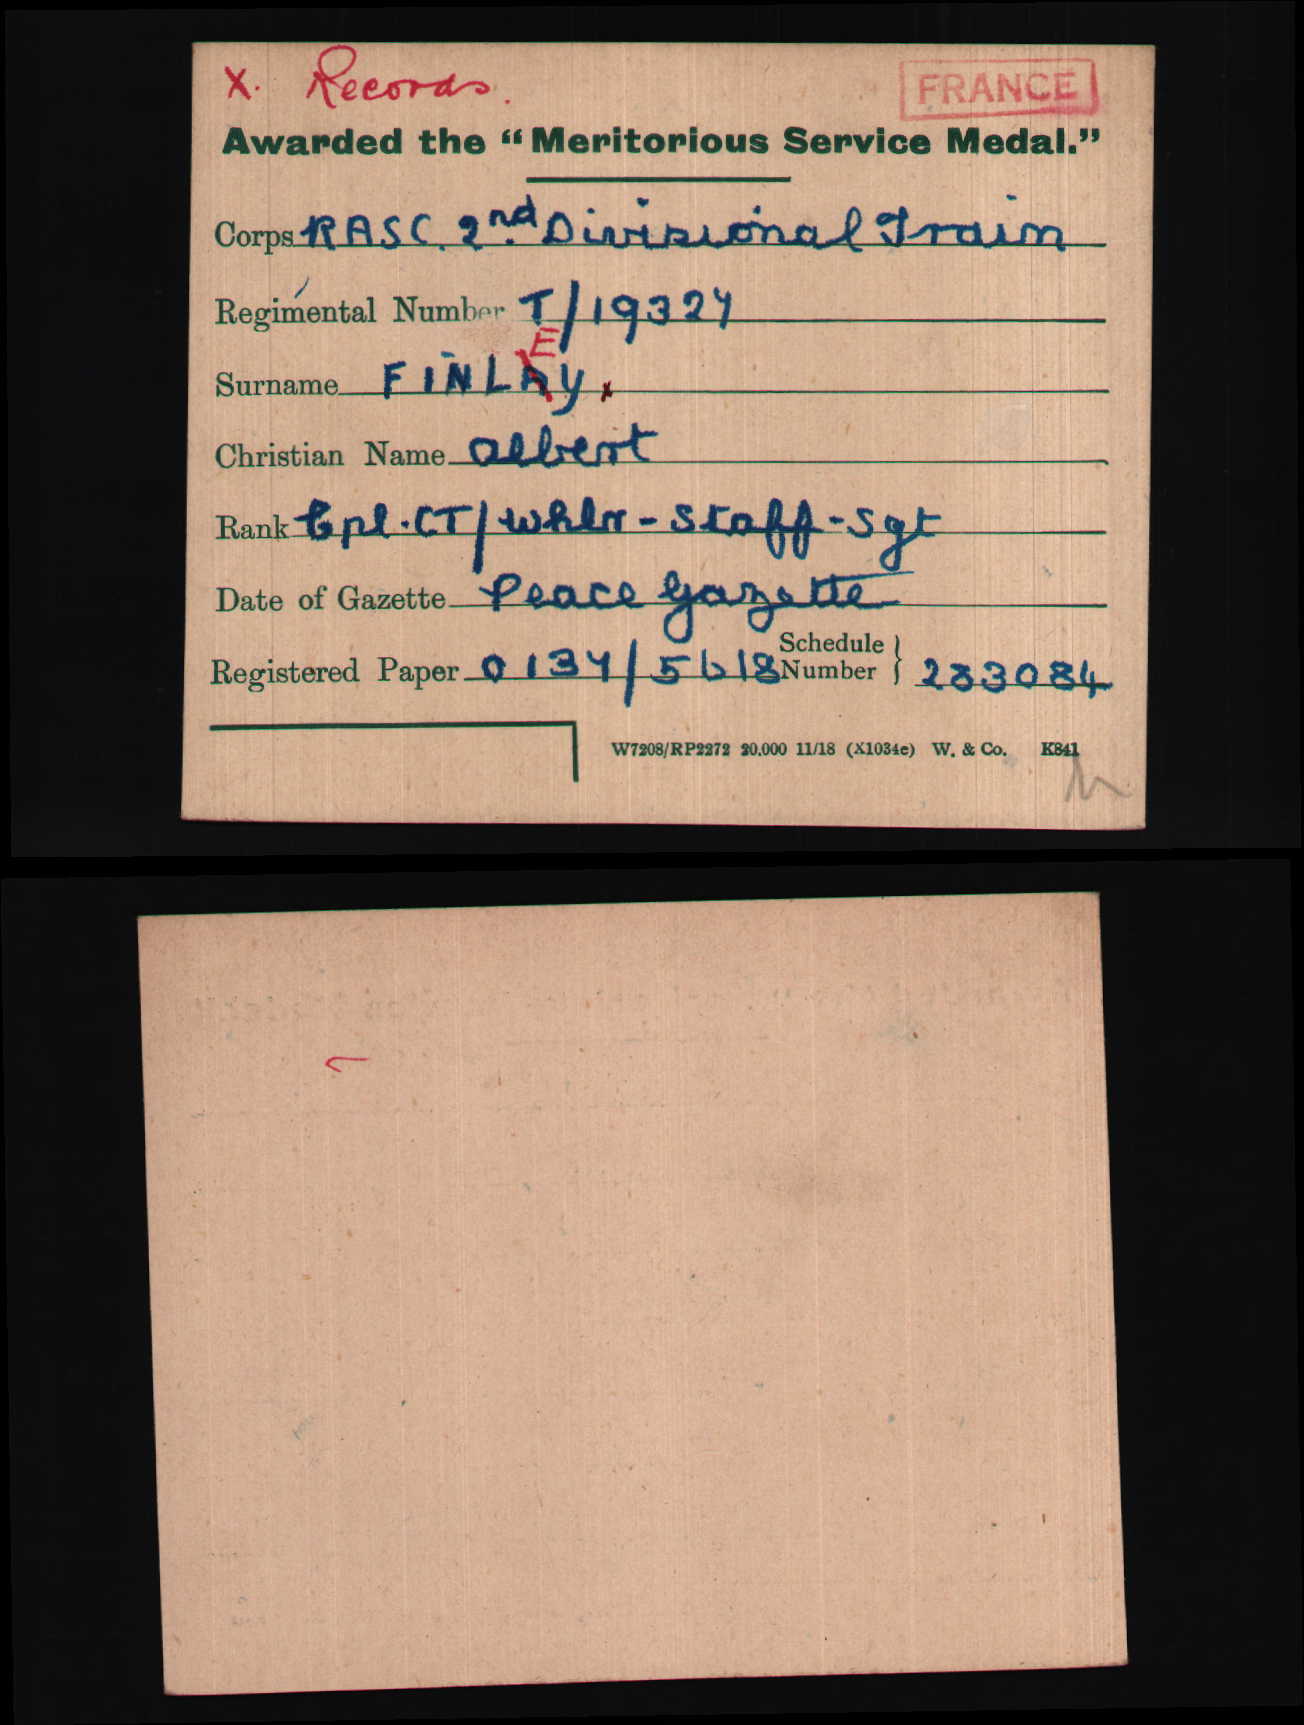 X. Records.
FRANCE
Awarded the “Meritorious Service Medal.”
Corps RASC. 2nd Divisional Train
Regimental Number T/19324
E
Surname FINLAY x
Christian Name Albert
Rank Cpl. (T/Whlr-Staff-Sgt
Date of Gazette Peace Gazette
Registered Paper 0134/5618 Schedule Number } 233084
W7208/RP2272 20,000 11/18 (X1034e) W. & Co. K841